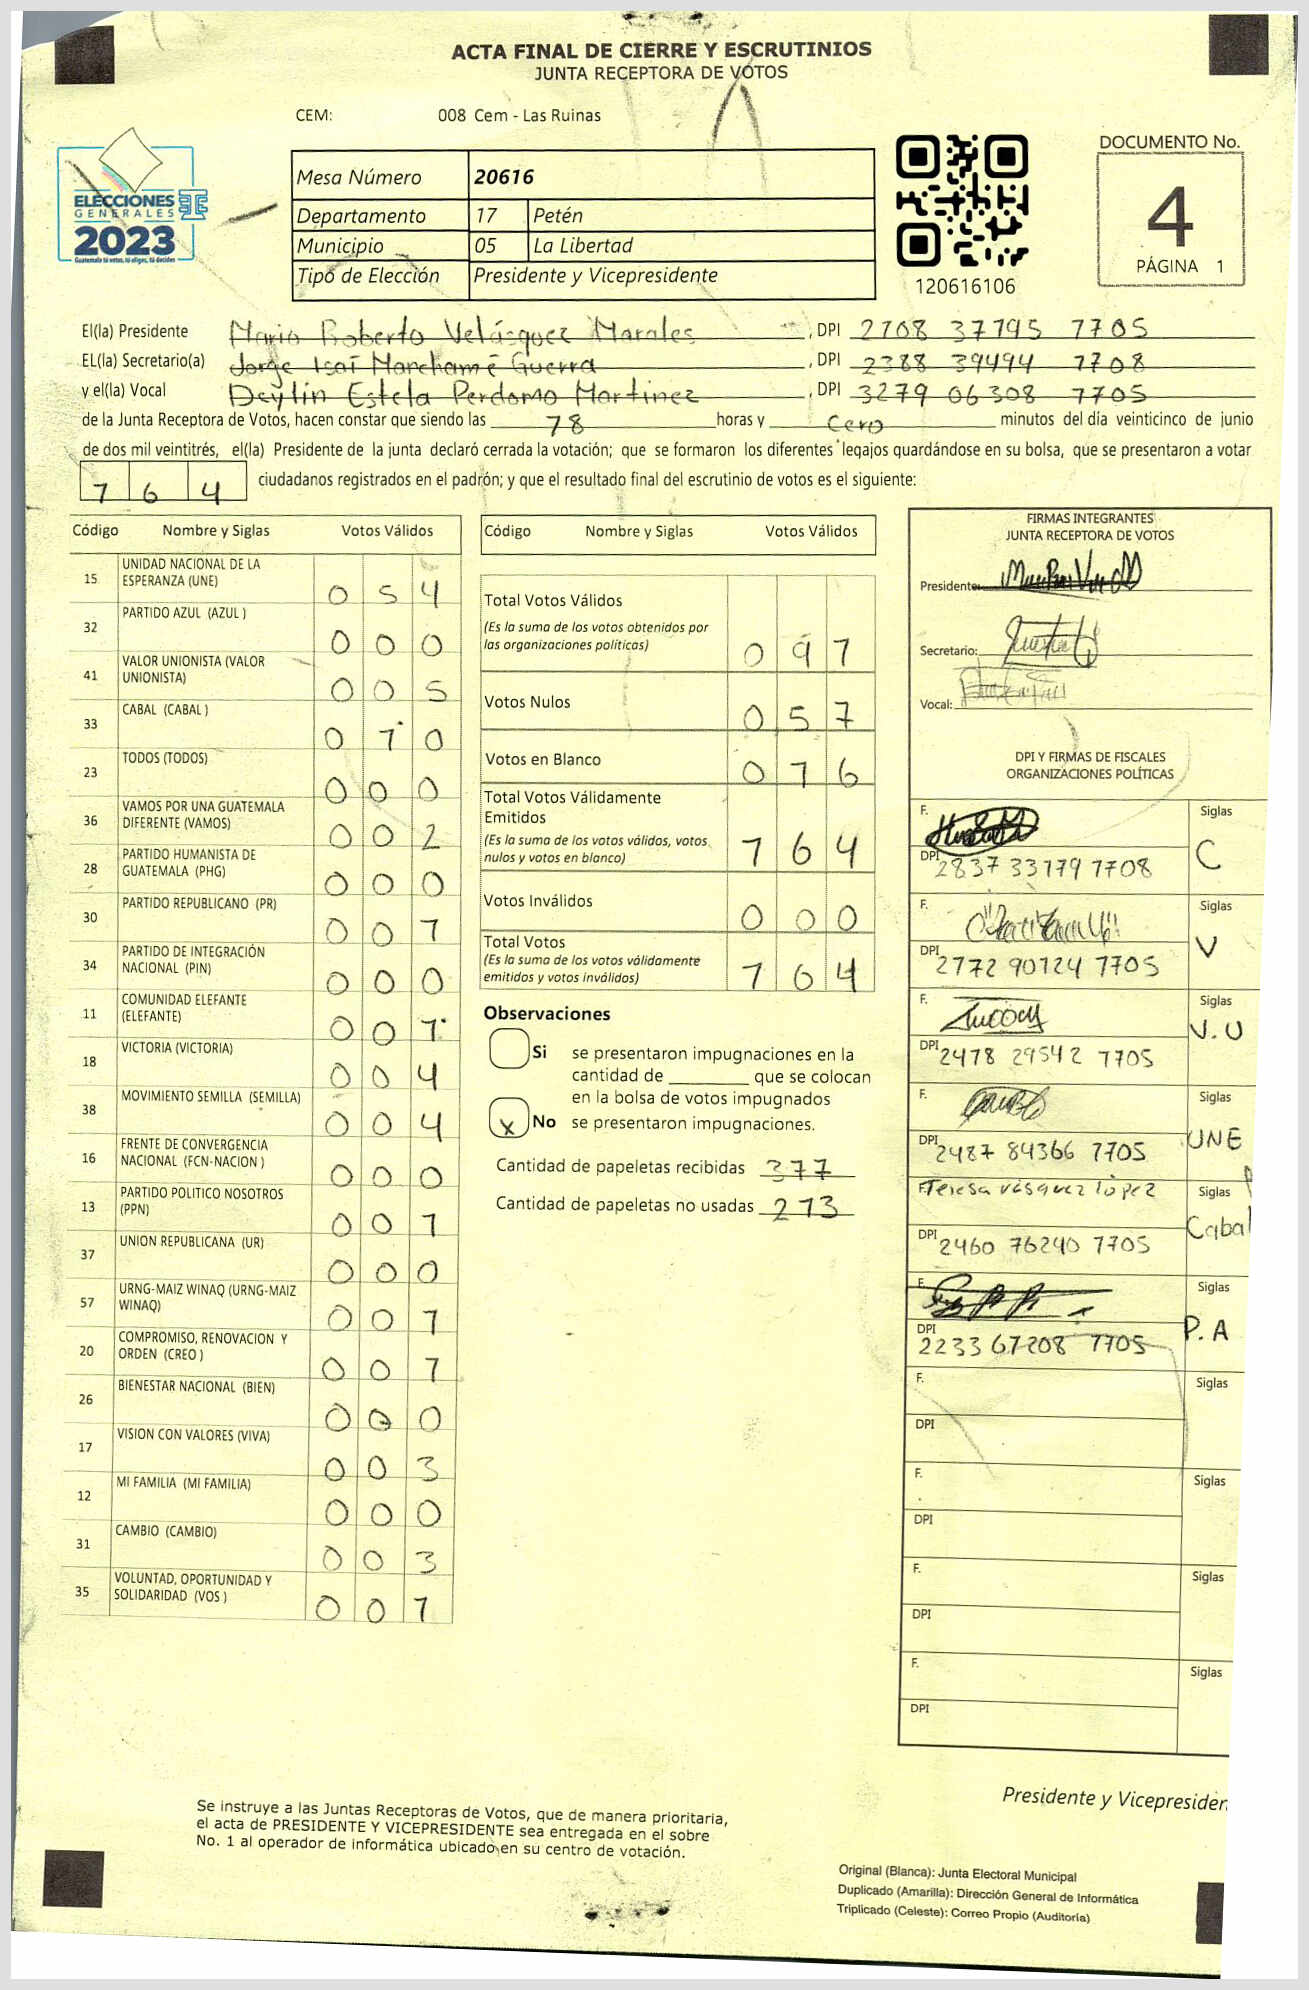 ACTA FINAL DE CIERRE Y ESCRUTINIOS
JUNTA RECEPTORA DE VOTOS
CEM: 008 Cem - Las Ruinas
ELECCIONES
GENERALES
2023
Guatemala tú votas, tú eliges, tú decides
Mesa Número 20616
Departamento 17 Petén
Municipio 05 La Libertad
Tipo de Elección Presidente y Vicepresidente
120616106
DOCUMENTO No.
4
PÁGINA 1
El(la) Presidente Mario Roberto Velásquez Morales , DPI 2108 31195 1705
EL(la) Secretario(a) Jorge Isaí Marchamé Guerra , DPI 2388 39494 1708
y el(la) Vocal Deylin Estela Perdomo Martinez , DPI 3279 06308 1705
de la Junta Receptora de Votos, hacen constar que siendo las 18 horas y Cero minutos del día veinticinco de junio
de dos mil veintitrés, el(la) Presidente de la junta declaró cerrada la votación; que se formaron los diferentes legajos guardándose en su bolsa, que se presentaron a votar
1 6 4 ciudadanos registrados en el padrón; y que el resultado final del escrutinio de votos es el siguiente:
Código Nombre y Siglas Votos Válidos
15 UNIDAD NACIONAL DE LA
ESPERANZA (UNE) 0 5 4
32 PARTIDO AZUL (AZUL ) 0 0 0
41 VALOR UNIONISTA (VALOR
UNIONISTA) 0 0 5
33 CABAL (CABAL ) 0 1 0
23 TODOS (TODOS) 0 0 0
36 VAMOS POR UNA GUATEMALA
DIFERENTE (VAMOS) 0 0 2
28 PARTIDO HUMANISTA DE
GUATEMALA (PHG) 0 0 0
30 PARTIDO REPUBLICANO (PR) 0 0 1
34 PARTIDO DE INTEGRACIÓN
NACIONAL (PIN) 0 0 0
11 COMUNIDAD ELEFANTE
(ELEFANTE) 0 0 1
18 VICTORIA (VICTORIA) 0 0 4
38 MOVIMIENTO SEMILLA (SEMILLA) 0 0 4
16 FRENTE DE CONVERGENCIA
NACIONAL (FCN-NACION ) 0 0 0
13 PARTIDO POLITICO NOSOTROS
(PPN) 0 0 1
37 UNION REPUBLICANA (UR) 0 0 0
57 URNG-MAIZ WINAQ (URNG-MAIZ
WINAQ) 0 0 1
20 COMPROMISO, RENOVACION Y
ORDEN (CREO ) 0 0 1
26 BIENESTAR NACIONAL (BIEN) 0 0 0
17 VISION CON VALORES (VIVA) 0 0 3
12 MI FAMILIA (MI FAMILIA) 0 0 0
31 CAMBIO (CAMBIO) 0 0 3
35 VOLUNTAD, OPORTUNIDAD Y
SOLIDARIDAD (VOS ) 0 0 1
Código Nombre y Siglas Votos Válidos
Total Votos Válidos
(Es la suma de los votos obtenidos por
las organizaciones políticas) 0 9 1
Votos Nulos 0 5 7
Votos en Blanco 0 1 6
Total Votos Válidamente
Emitidos
(Es la suma de los votos válidos, votos
nulos y votos en blanco) 1 6 4
Votos Inválidos 0 0 0
Total Votos
(Es la suma de los votos válidamente
emitidos y votos inválidos) 1 6 4
Observaciones
Si se presentaron impugnaciones en la
cantidad de ________ que se colocan
en la bolsa de votos impugnados
x No se presentaron impugnaciones.
Cantidad de papeletas recibidas 377
Cantidad de papeletas no usadas 213
FIRMAS INTEGRANTES
JUNTA RECEPTORA DE VOTOS
Presidente:
Secretario:
Vocal:
DPI Y FIRMAS DE FISCALES
ORGANIZACIONES POLÍTICAS
F. Siglas
DPI 2837 33179 1708 C
F. Siglas
DPI 2112 90124 1705 V
F. Siglas
DPI 2418 29542 1705 V.U
F. Siglas
DPI 2487 84366 1705 UNE
F. Teresa Vásquez López Siglas
DPI 2460 16240 1705 Cabal
F. Siglas
DPI 2233 61208 1705 P.A
F. Siglas
DPI
F. Siglas
DPI
F. Siglas
DPI
F. Siglas
DPI
Presidente y Vicepresiden
Se instruye a las Juntas Receptoras de Votos, que de manera prioritaria,
el acta de PRESIDENTE Y VICEPRESIDENTE sea entregada en el sobre
No. 1 al operador de informática ubicado en su centro de votación.
Original (Blanca): Junta Electoral Municipal
Duplicado (Amarilla): Dirección General de Informática
Triplicado (Celeste): Correo Propio (Auditoría)